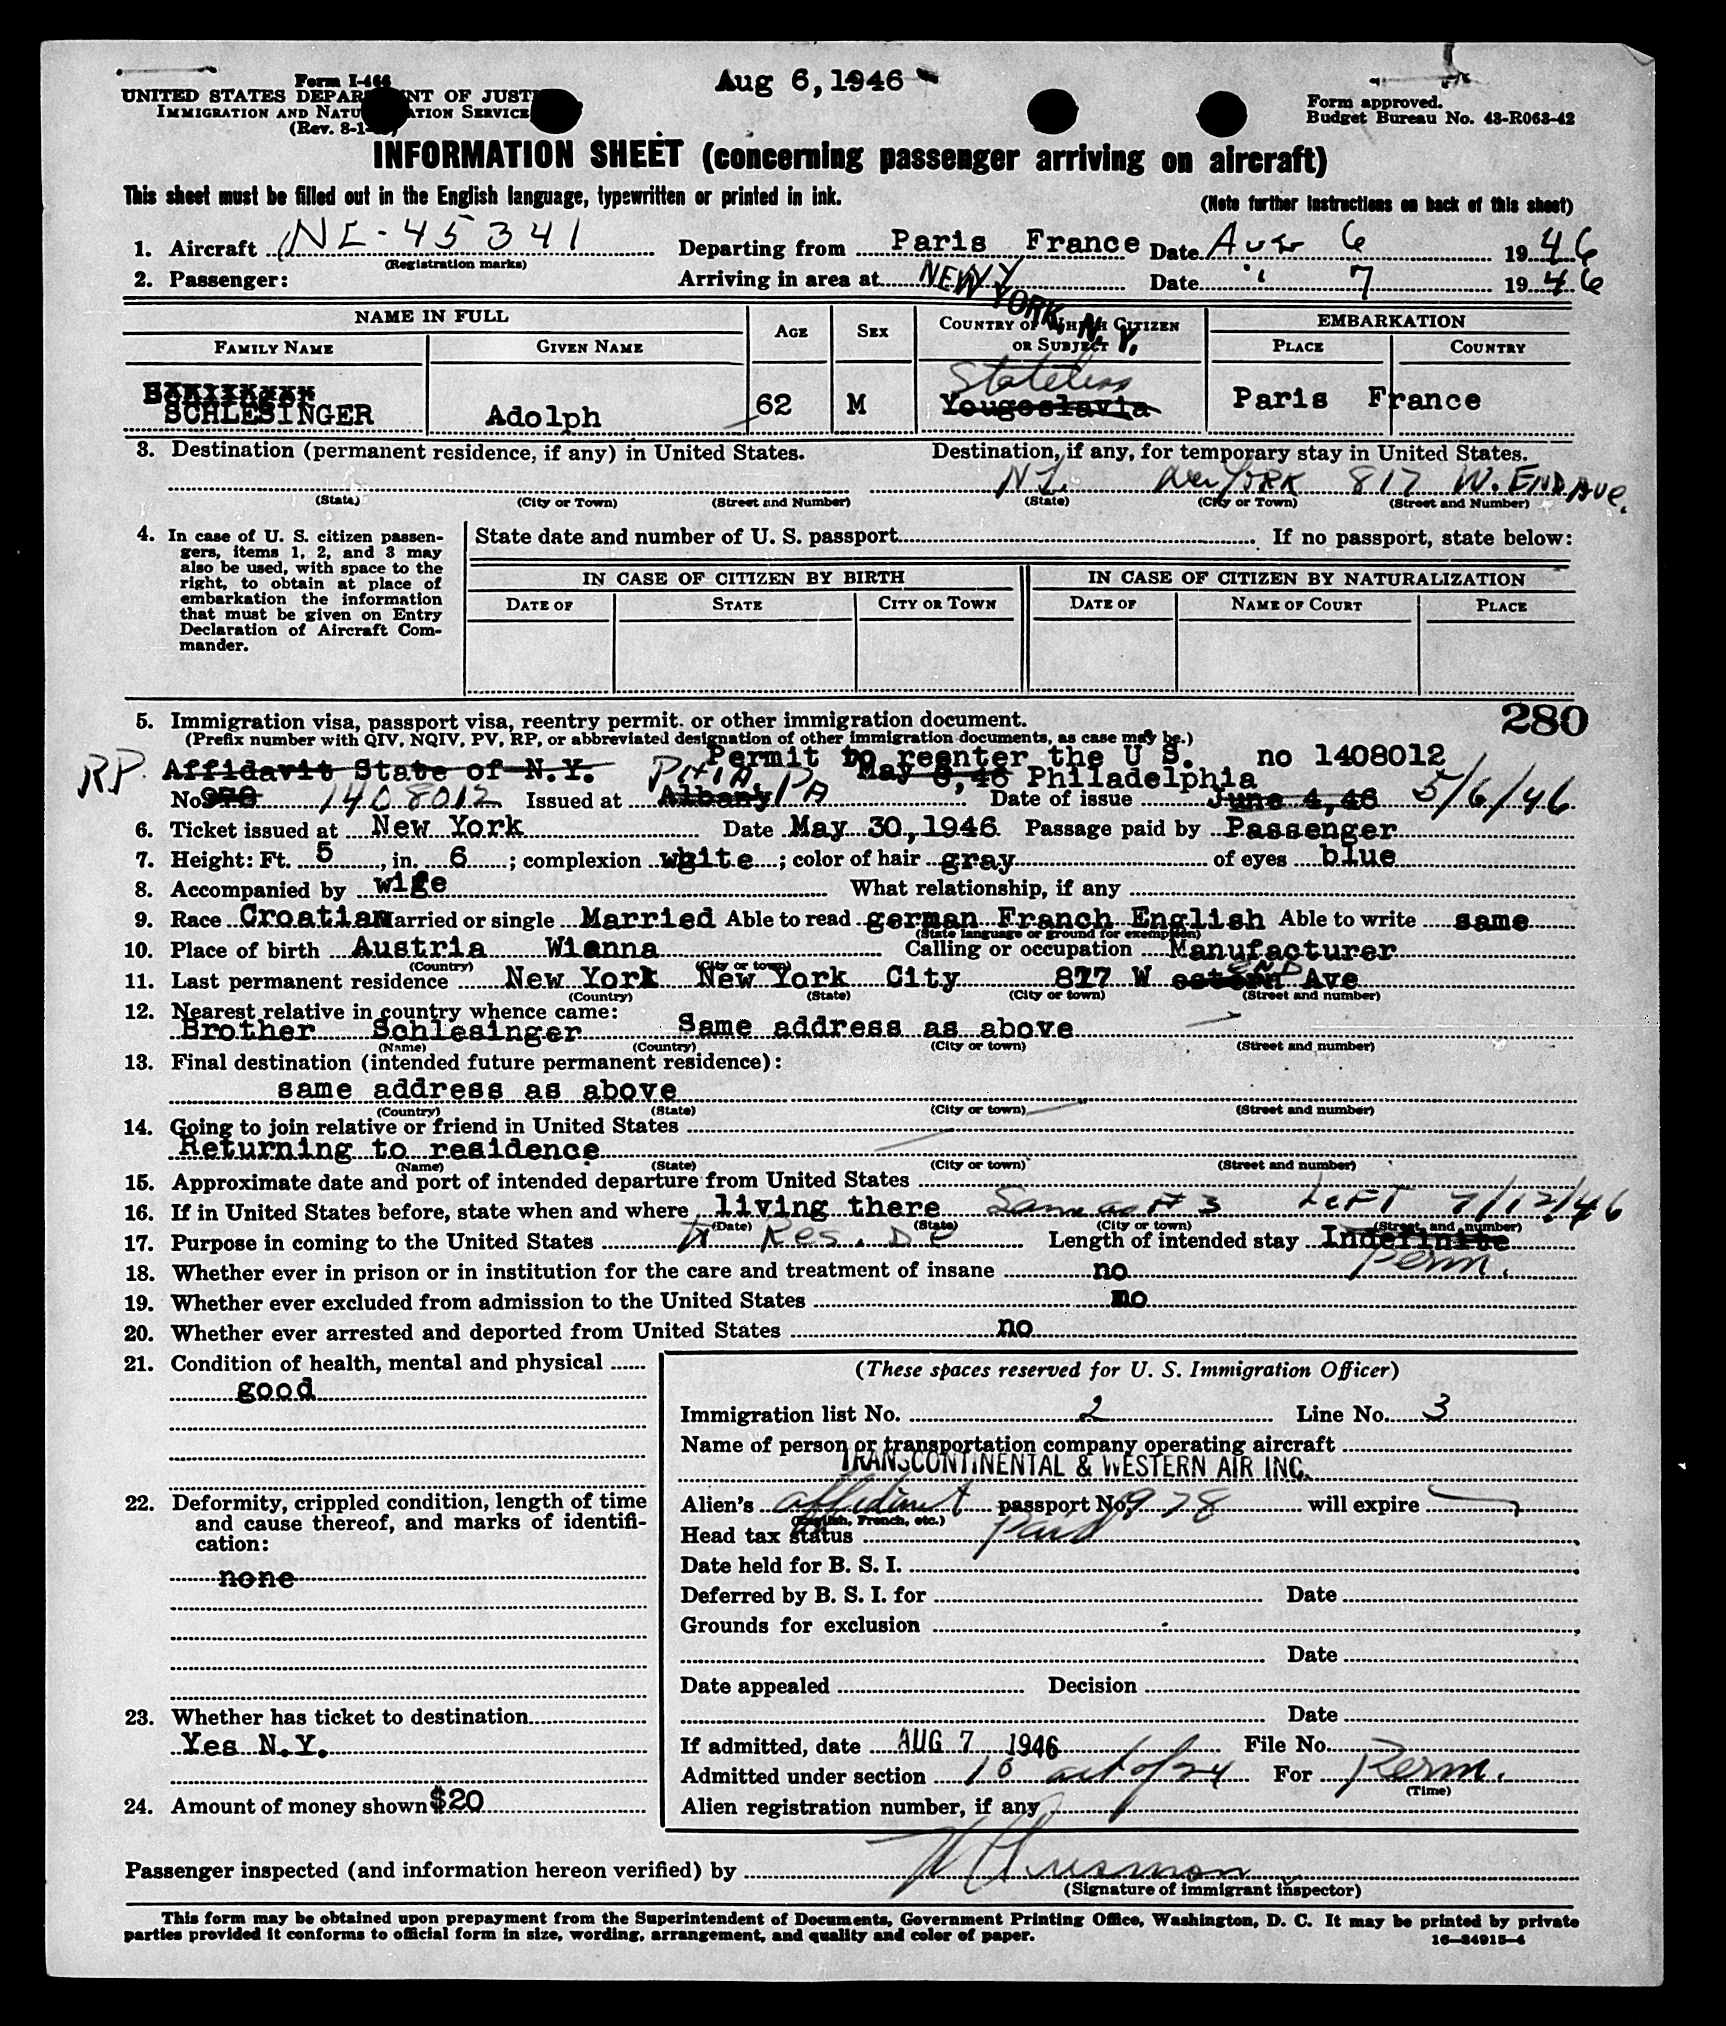 Form I-466
Aug 6, 1946
UNITED STATES DEPAR NT OF JUST
IMMIGRATION AND NATU ATION SERVICE
(Rev. 8-1- )
Form approved.
Budget Bureau No. 43-R063-42
INFORMATION SHEET (concerning passenger arriving on aircraft)
This sheet must be filled out in the English language, typewritten or printed in ink.
(Note further instructions on back of this sheet)
1. Aircraft NC-45341 Departing from Paris France Date Aug 6 1946
(Registration marks)
2. Passenger: Arriving in area at NEW YORK, N. Y. Date " 7 1946
NAME IN FULL AGE SEX COUNTRY OF WHICH CITIZEN OR SUBJECT EMBARKATION
FAMILY NAME GIVEN NAME PLACE COUNTRY
Stateless
SCHLESINGER Adolph 62 M Yougoslavia Paris France
3. Destination (permanent residence, if any) in United States. Destination, if any, for temporary stay in United States.
N.Y. New YORK 817 W. END AVE.
(State) (City or Town) (Street and Number) (State) (City or Town) (Street and Number)
4. In case of U. S. citizen passen-
gers, items 1, 2, and 3 may
also be used, with space to the
right, to obtain at place of
embarkation the information
that must be given on Entry
Declaration of Aircraft Com-
mander.
State date and number of U. S. passport If no passport, state below:
IN CASE OF CITIZEN BY BIRTH IN CASE OF CITIZEN BY NATURALIZATION
DATE OF STATE CITY OR TOWN DATE OF NAME OF COURT PLACE
5. Immigration visa, passport visa, reentry permit, or other immigration document.
280
(Prefix number with QIV, NQIV, PV, RP, or abbreviated designation of other immigration documents, as case may be.)
Permit to reenter the U S. no 1408012
RP. Affidavit State of N.Y. PHILA, PA May 6, 46 Philadelphia
No 978 1408012 Issued at Albany Date of issue June 4, 46 5/6/46
6. Ticket issued at New York Date May 30, 1946 Passage paid by Passenger
7. Height: Ft. 5, in. 6; complexion white; color of hair gray of eyes blue
8. Accompanied by wife What relationship, if any
9. Race Croatian Married or single Married Able to read german Franch English Able to write same
(State language or ground for exemption)
10. Place of birth Austria Wianna Calling or occupation Manufacturer
(Country) (City or town)
11. Last permanent residence New York New York City 817 W END Ave
(Country) (State) (City or town) (Street and number)
12. Nearest relative in country whence came:
Brother Schlesinger Same address as above
(Name) (Country) (City or town) (Street and number)
13. Final destination (intended future permanent residence):
same address as above
(Country) (State) (City or town) (Street and number)
14. Going to join relative or friend in United States
Returning to residence
(Name) (State) (City or town) (Street and number)
15. Approximate date and port of intended departure from United States
16. If in United States before, state when and where living there Same as # 3 LEFT 7/12/46
(Date) (State) (City or town) (Street and number)
17. Purpose in coming to the United States Res. Length of intended stay Indefinite Perm.
18. Whether ever in prison or in institution for the care and treatment of insane no
19. Whether ever excluded from admission to the United States no
20. Whether ever arrested and deported from United States no
21. Condition of health, mental and physical
good
22. Deformity, crippled condition, length of time
and cause thereof, and marks of identifi-
cation:
none
23. Whether has ticket to destination
Yes N.Y.
24. Amount of money shown $20
(These spaces reserved for U. S. Immigration Officer)
Immigration list No. 2 Line No. 3
Name of person or transportation company operating aircraft
TRANSCONTINENTAL & WESTERN AIR INC.
Alien's affidavit passport No. 978 will expire
(English, French, etc.)
Head tax status Paid
Date held for B. S. I.
Deferred by B. S. I. for Date
Grounds for exclusion
Date
Date appealed Decision
Date
If admitted, date AUG 7 1946 File No.
Admitted under section 10 act of 24 For Perm.
(Time)
Alien registration number, if any
Passenger inspected (and information hereon verified) by
(Signature of immigrant inspector)
This form may be obtained upon prepayment from the Superintendent of Documents, Government Printing Office, Washington, D. C. It may be printed by private
parties provided it conforms to official form in size, wording, arrangement, and quality and color of paper.
16—24915-4